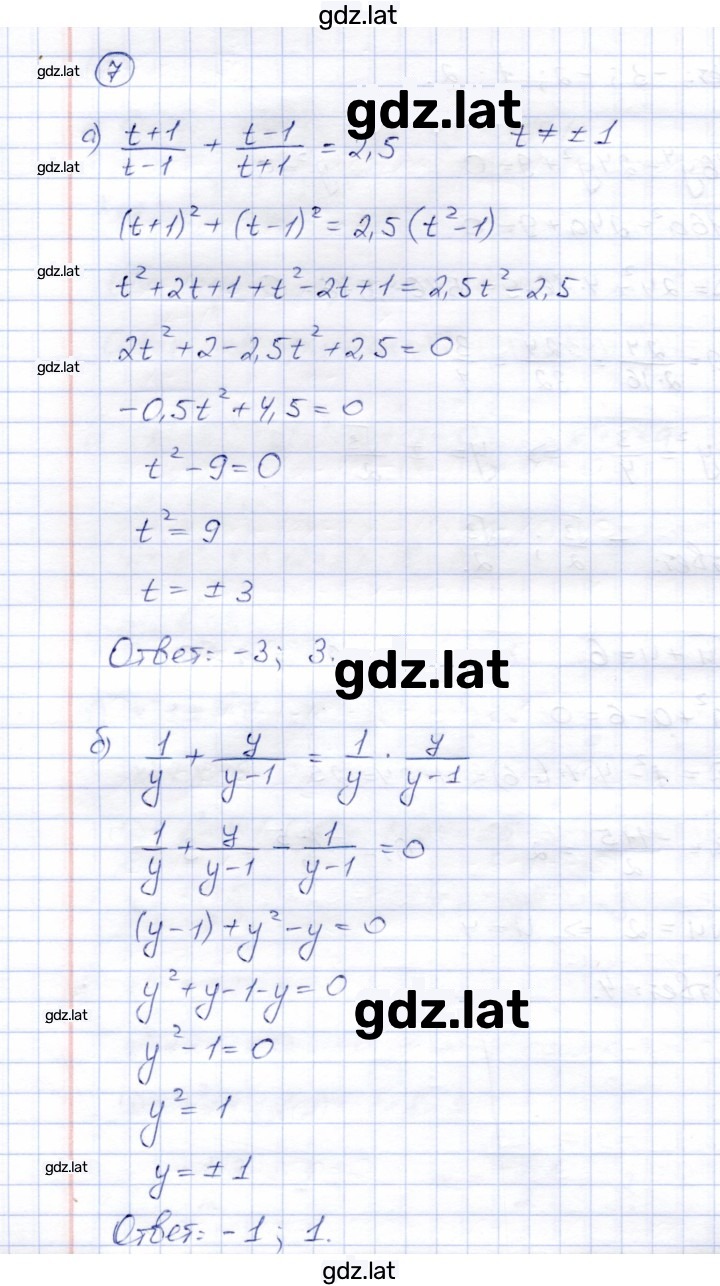 gdz.lat
gdz.lat
7
gdz.lat
а) (t+1)/(t-1) + (t-1)/(t+1) = 2,5 t ≠ ±1
gdz.lat
(t+1)² + (t-1)² = 2,5(t²-1)
gdz.lat
t²+2t+1+t²-2t+1=2,5t²-2,5
2t²+2-2,5t²+2,5=0
gdz.lat
-0,5t²+4,5=0
t²-9=0
t²=9
t= ±3
Ответ: -3; 3.
gdz.lat
б) 1/y + y/(y-1) = 1/y · y/(y-1)
1/y + y/(y-1) - 1/(y-1) = 0
(y-1)+y²-y=0
y²+y-1-y=0
gdz.lat
gdz.lat
y²-1=0
y²=1
gdz.lat
y=±1
Ответ: -1; 1.
gdz.lat